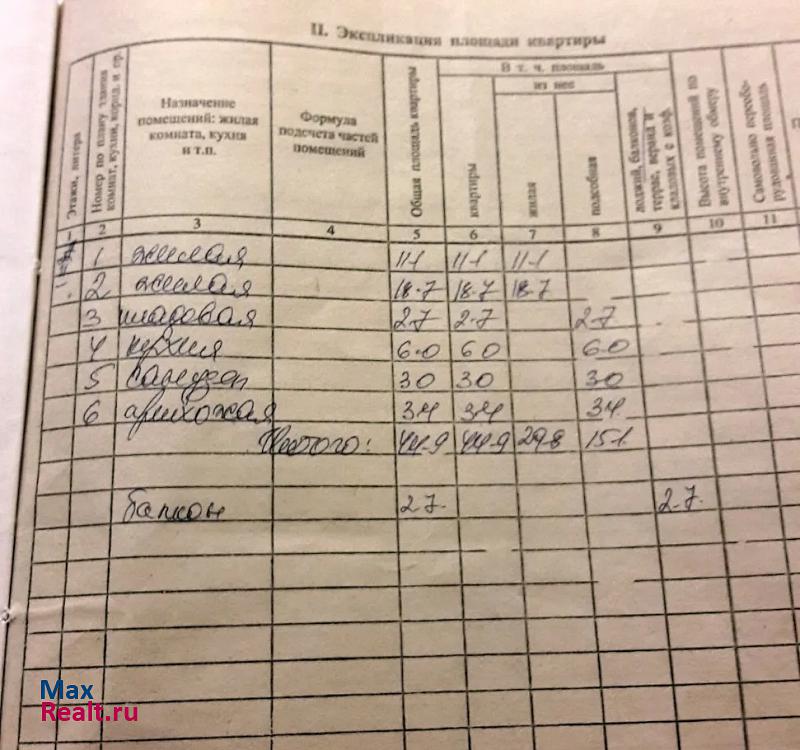 II. Экспликация площади квартиры
Этажи, литера
Номер по плану здания комнат, кухни, корид. и пр.
Назначение помещений: жилая комната, кухня и т.п.
Формула подсчета частей помещений
Общая площадь квартиры
В т. ч. площадь
из нее
квартиры
жилая
подсобная
лоджий, балконов, террас, веранд и кладовых с коэф.
Высота помещений по внутреннему обмеру
Самовольно переоборудованная площадь
2 3 4 5 6 7 8 9 10 11
1 жилая 11-1 11-1 11-1
2 жилая 18-7 18-7 18-7
3 кладовая 2-7 2-7 2-7
4 кухня 6-0 6 0 6-0
5 санузел 3 0 3 0 3 0
6 прихожая 3 4 3 4 3 4
Итого: 44-9 44-9 29 8 15-1
балкон 2-7 2-7
Max
Realt.ru